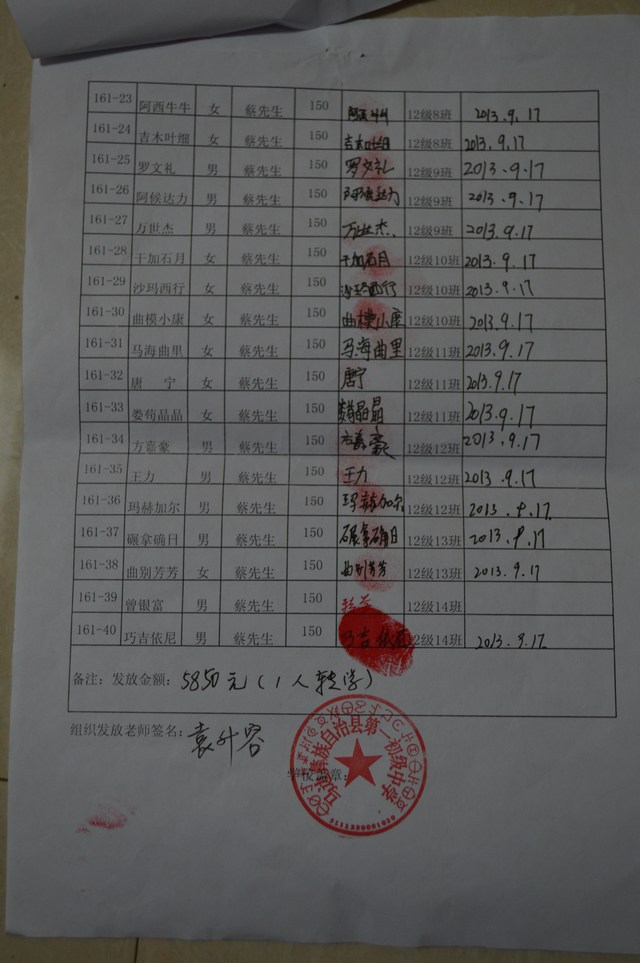 161-23 阿西牛牛 女 蔡先生 150 阿西牛牛 12级8班 2013.9.17
161-24 吉木叶细 女 蔡先生 150 吉木叶细 12级8班 2013.9.17
161-25 罗文礼 男 蔡先生 150 罗文礼 12级9班 2013.9.17
161-26 阿候达力 男 蔡先生 150 阿候达力 12级9班 2013.9.17
161-27 万世杰 男 蔡先生 150 万世杰 12级9班 2013.9.17
161-28 干加石月 女 蔡先生 150 干加石月 12级10班 2013.9.17
161-29 沙玛西行 女 蔡先生 150 沙玛西行 12级10班 2013.9.17
161-30 曲模小康 女 蔡先生 150 曲模小康 12级10班 2013.9.17
161-31 马海曲里 女 蔡先生 150 马海曲里 12级11班 2013.9.17
161-32 唐 宁 女 蔡先生 150 唐宁 12级11班 2013.9.17
161-33 娄荀晶晶 女 蔡先生 150 晶晶 12级11班 2013.9.17
161-34 方嘉豪 男 蔡先生 150 方嘉豪 12级12班 2013.9.17
161-35 王力 男 蔡先生 150 王力 12级12班 2013.9.17
161-36 玛赫加尔 男 蔡先生 150 玛赫加尔 12级12班 2013.9.17
161-37 碾拿确日 男 蔡先生 150 碾拿确日 12级13班 2013.9.17
161-38 曲别芳芳 女 蔡先生 150 曲别芳芳 12级13班 2013.9.17
161-39 曾银富 男 蔡先生 150 转学 12级14班
161-40 巧吉依尼 男 蔡先生 150 巧吉依尼 12级14班 2013.9.17
备注：发放金额：5850元（1人转学）
组织发放老师签名：袁外容
学校盖章：
马边彝族自治县第一初级中学